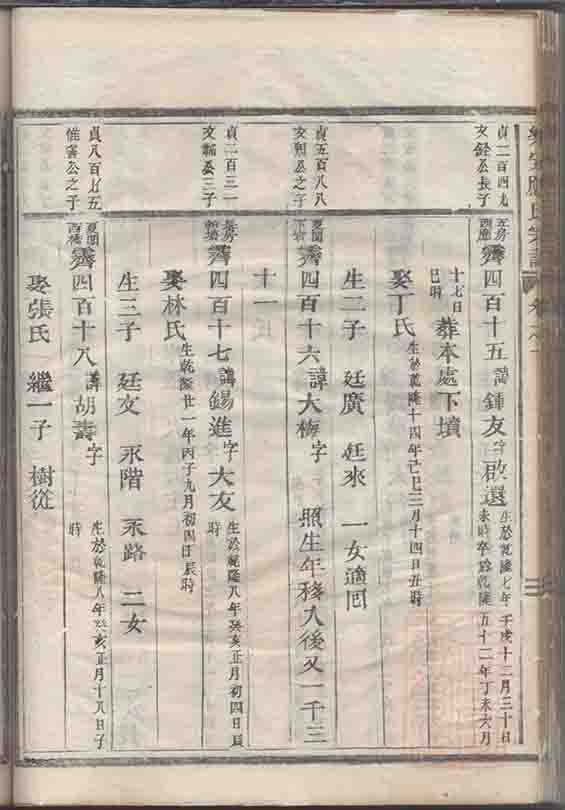 貞二百四九
文銓公長子
五房
西廳
霽四百十五諱鍾友字啟還
生於乾隆七年壬戌十二月三十日
未時卒於乾隆五十二年丁未六月
十七日
巳時
葬本處下墳
娶丁氏
生於乾隆十四年己巳三月十四日丑時
生二子 廷廣 廷來 一女適囘
貞五百八八
文朝公之子
霽四百十六諱大梅字
照生年移入後又一千三
十一
貞二百三一
文 公三子
長房
霽四百十七諱錫進字大友
生於乾隆八年癸亥正月初四日辰
時
娶林氏
生乾隆廿一年丙子九月初四日辰時
生三子 廷文 永階 永路 二女
貞八百廿五
惟 公之子
西
霽四百十八諱胡壽字
生於乾隆八年癸亥正月十八日子
時
娶張氏 繼一子 樹從